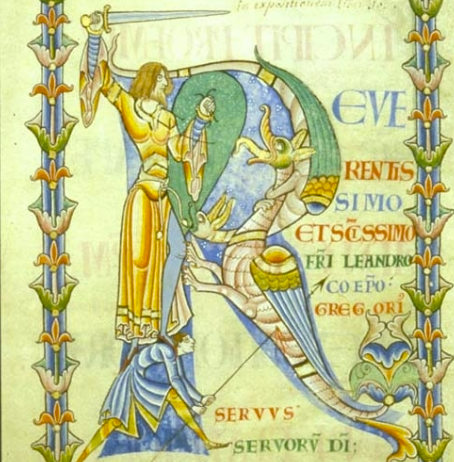 in expositionem
REVE
RENTIS
SIMO
ET SC̄ISSIMO
FR̄I LEANDRO
COEP̄O:
GREGORI᾽
SERVVS
SERVORV̄ DI̅;